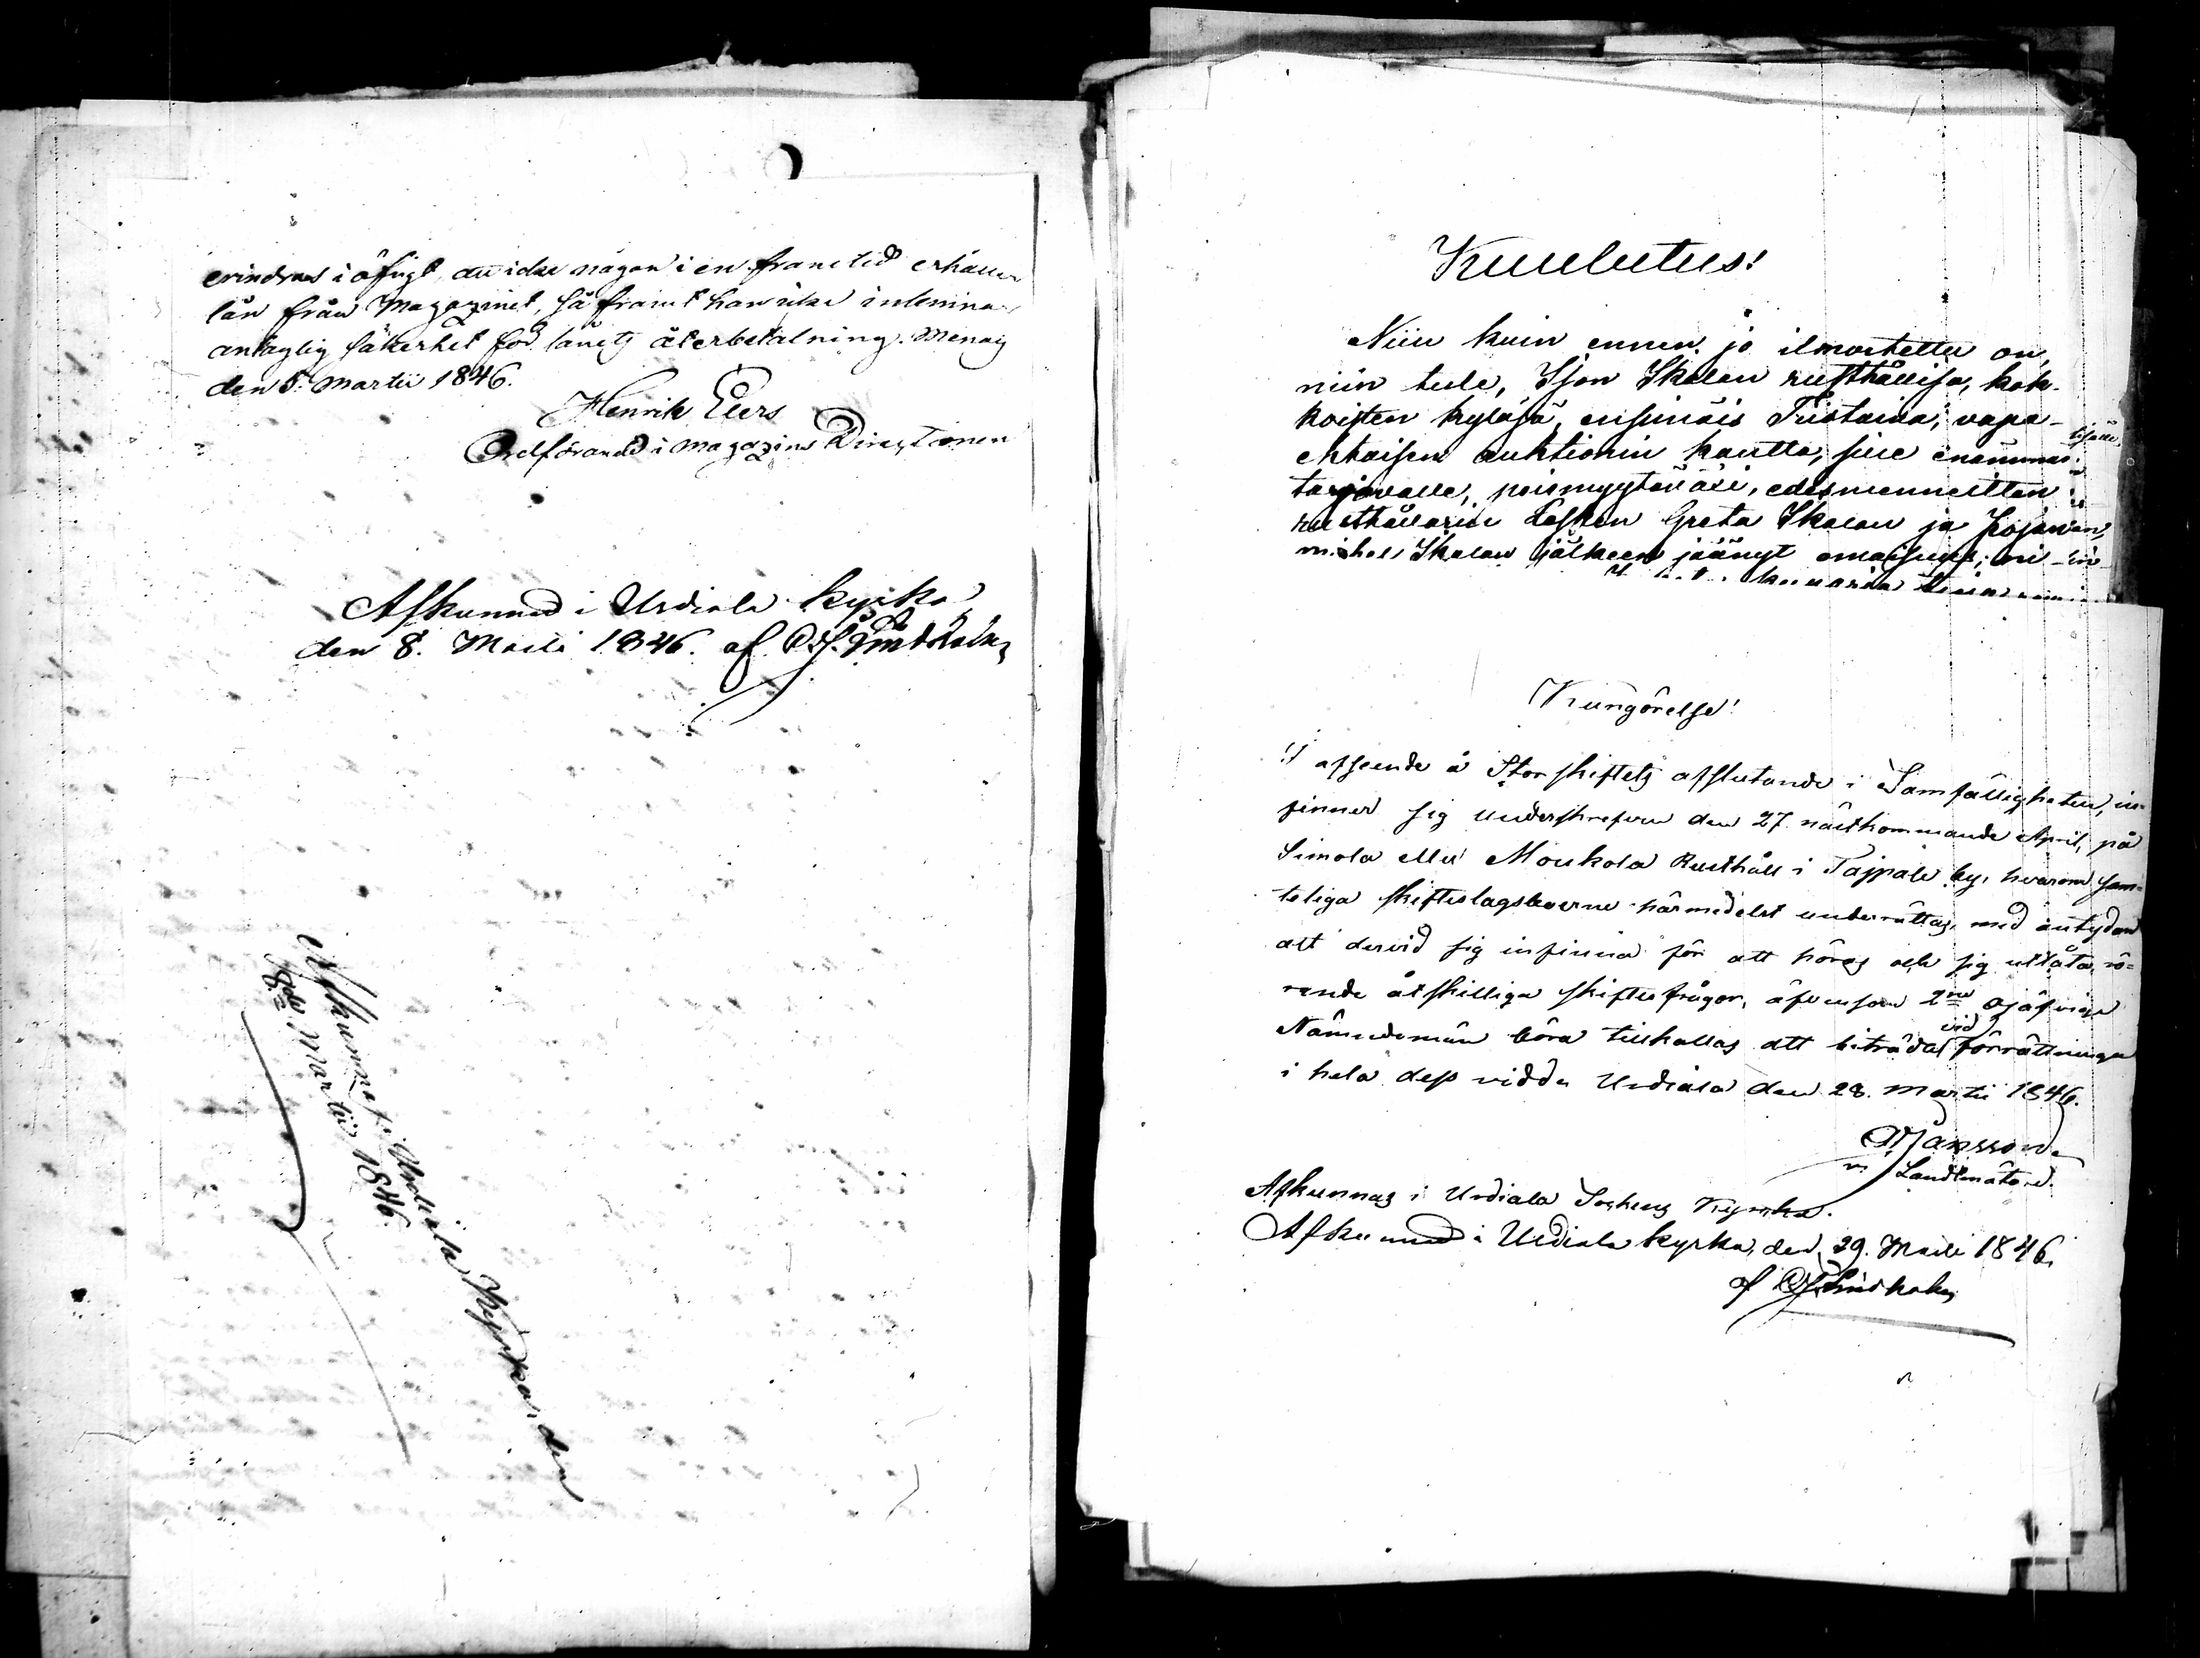 erindras i öfrigt, att icke någon i en framtid erhåller
lån från Magazinet, så framt han icke inlemnar
antaglig säkerhet för lånets återbetalning. Menoig
den 5. Martii 1846.
Henrik Eers
Ordförande i Magazins Directionen
Afkunnad i Urdiala kyrka
den 8. Martii 1846. af
Afkunnas i Urdiala Kyrka, den
8de Martii 1846.
Kuulutus!
Niin kuin ennen jo ilmoitettu on,
niin tule, Ison Skalan rusthållisa, kok-
koisten kyläsä, ensimäis Tiistaina, vapa-
ehtoisen auktionin kautta, sille enämmän
tarjovalle, poismyytäväxi, edesmennetten
rusthållarin Lesken Greta Skalan ja Pojanans
Mickel Skalan jälkeen jäänyt omaisuus;
Kungörelse!
I afseende å Storskiftets afslutande i Samfälligheten, in-
finner sig undertskrefven den 27 nästkommande April, på
Simola eller Moukola Rusthåll i Tajpale by, hvarom sam-
teliga skifteslagsboerne härmedelst underrättas, med antydan
att dervid sig infinna för att höras och sig utlåta, rö-
rande åtskilliga skiftesfrågor, äfvensom 2ne ojäfvige
Nämndemän böra tillkallas att biträda vid förrättningen
i hela dess vidd. Urdiala den 28. Martii 1846.
Jansson
Landtmätare
Afkunnas i Urdiala Sockens Kyrka.
Afkunnad i Urdiala kyrka, den 29. Martii 1846.
af